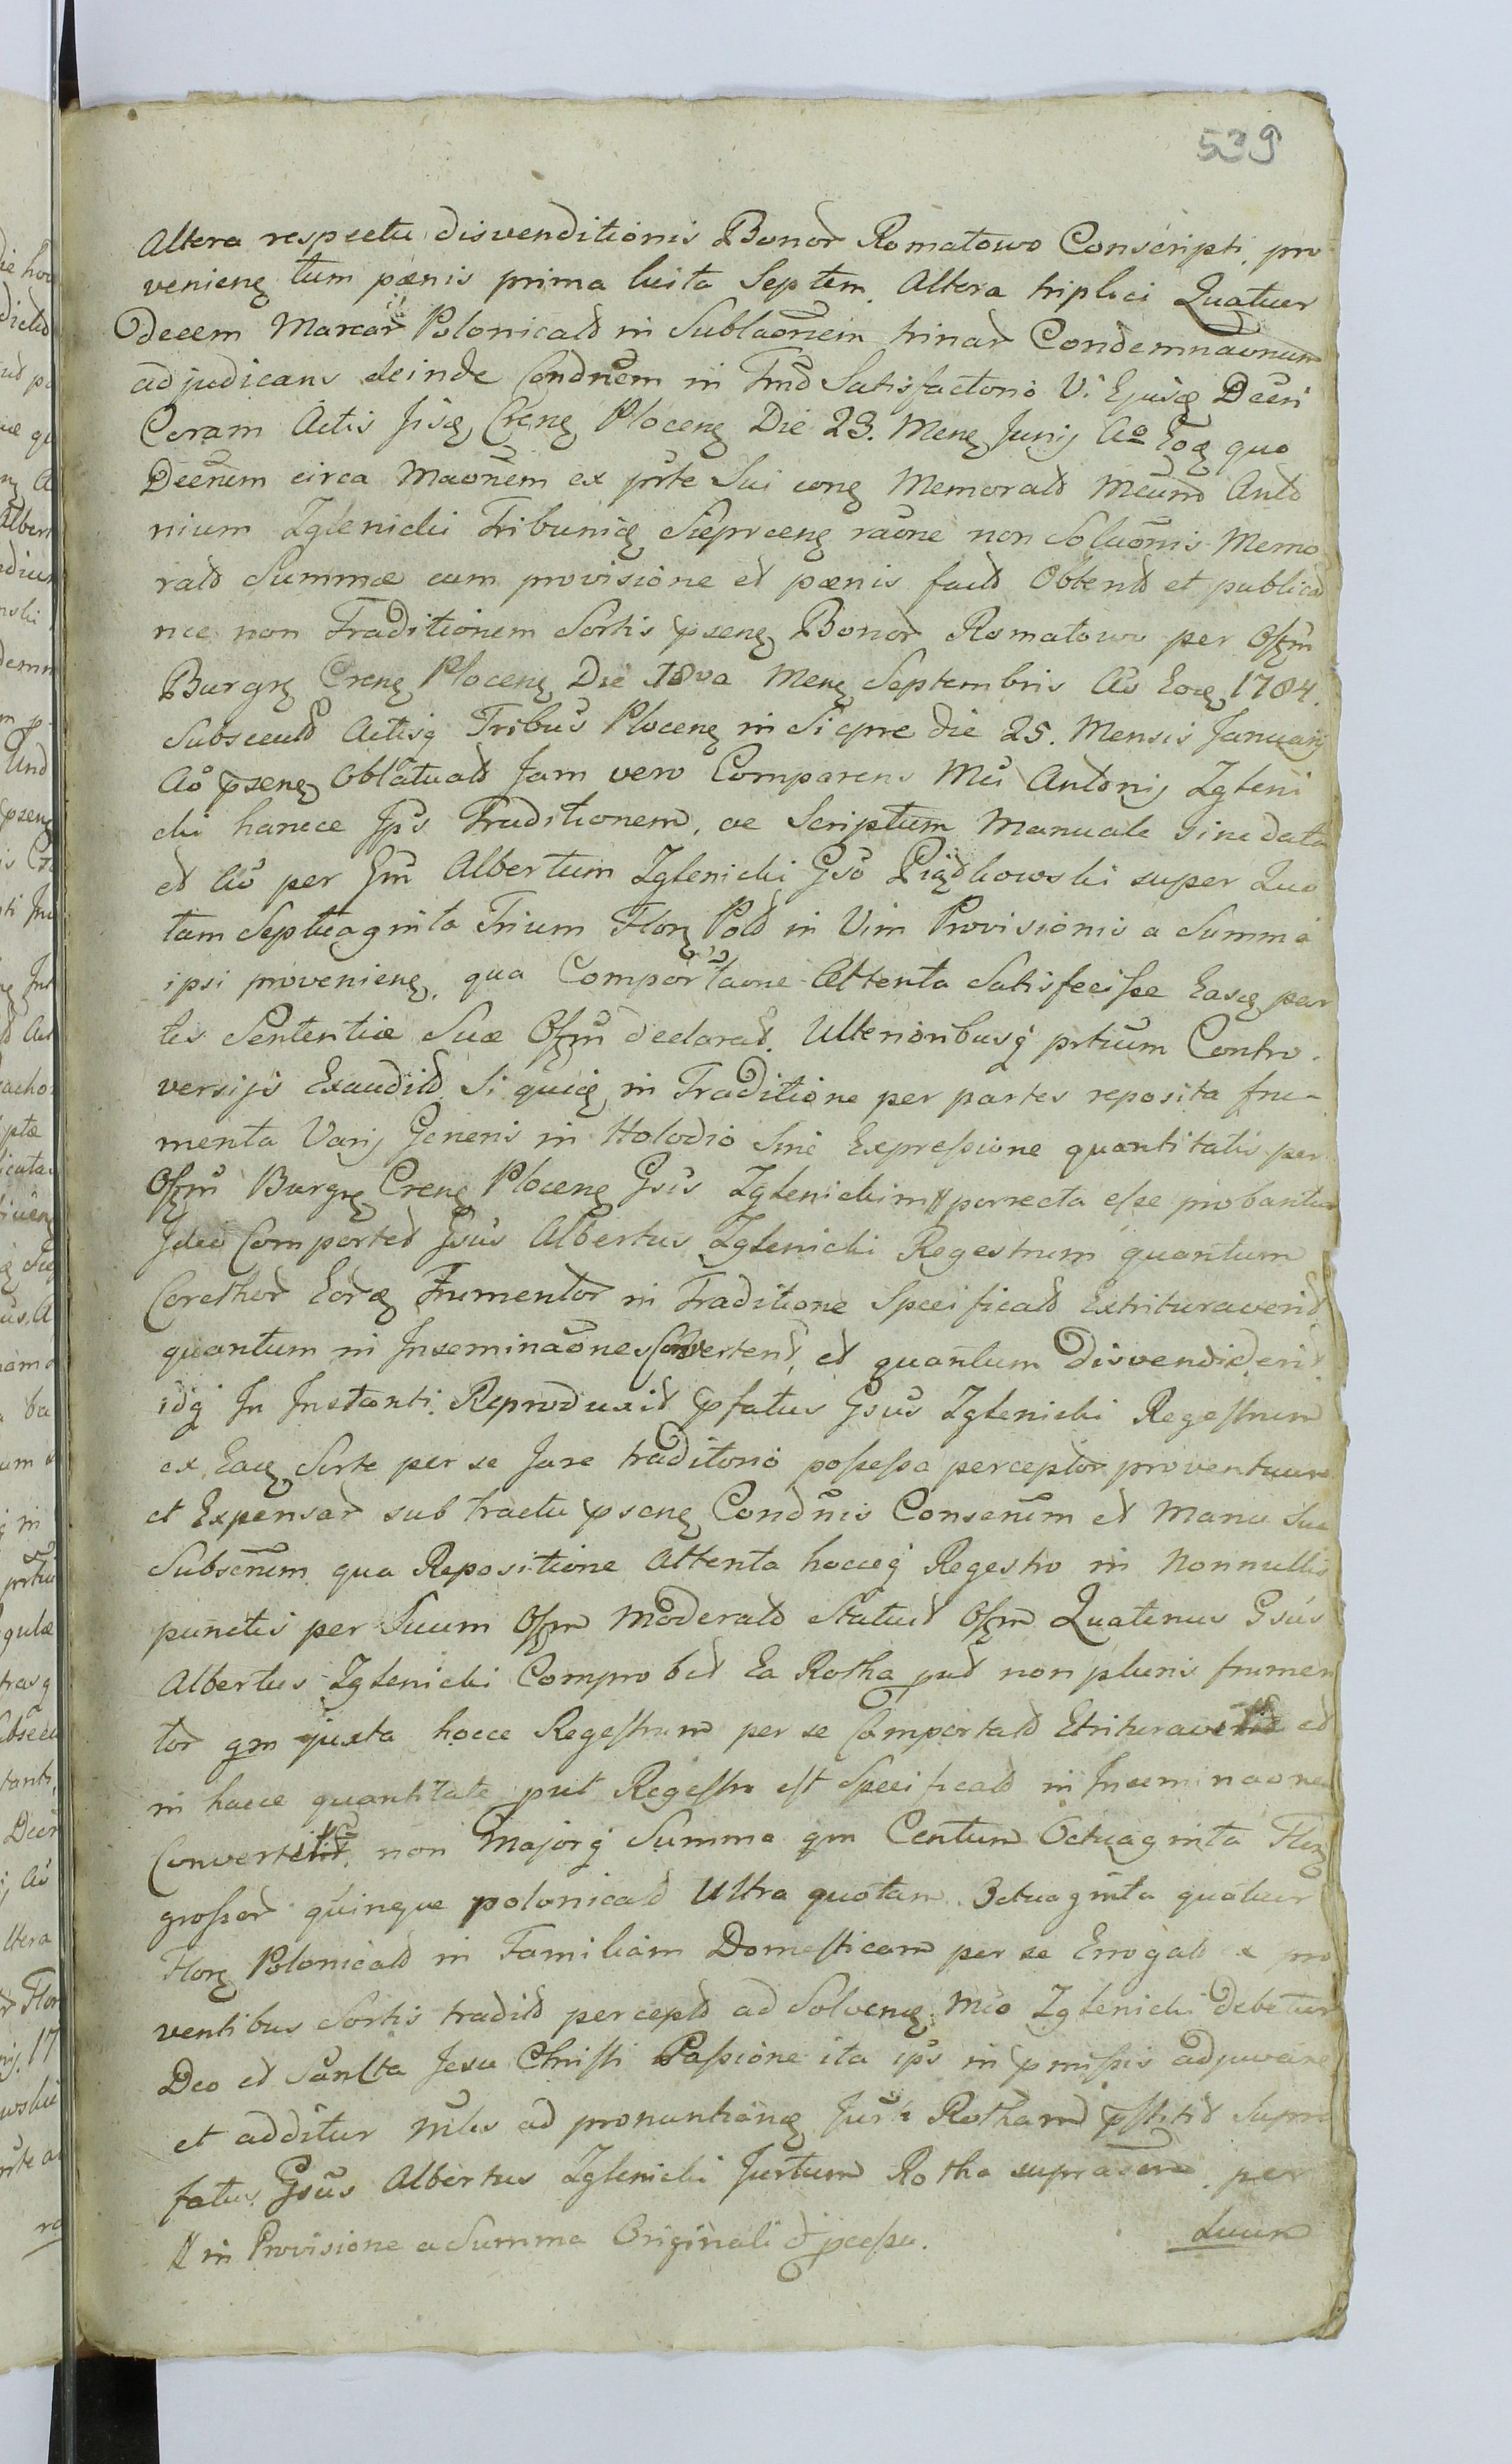 539
Altera respectu disvenditionis Bonor Romatowo Conscripti pro
venienẽ tum pænis prima luita Septem Altera triplici Quatuor
Decem Marcar Polonicald in Sublaõnem trinar Condemnaõnum
adjudicans deinde Condnẽm in Tmd Satisfactorio Vi Ejusq Decri
Coram Actis Jisq Crenę Plocenę Die 23. Menę Junij Aº Eoq quo
Decrum circa Maõnem ex prte Sui conę Memorald Mcum Anto
nium Zglenicki Tribunię Sieprcenę raõne non Soluõnis Memo
rald Summæ cum provisione et pænis factd Obtentd et publicad
nec non Traditionem Sortis pscnę Bonor Romatowo per Offm
Burgrę Crenę Plocenę Die 18va Menę Septembris Ao Eoq 1784.
Subsecutd Actisq Tribus Plocenę in Siepre die 25. Mensis Januarij
Ao psenę Oblatuald Jam vero Comparens Mci Antonij Zgleni
cki hancce Jps Traditionem, ac Scriptum Manuale sine data
et Ao per Gm Albertum Zglenicki Gso Piądkowski super Quo
tam Septuaginta Trium Florę Pold in Vim Provisionis a Summa
ipsi provenienę, qua Comportaone Attenta Satisfecisse Easq par
tes Sententiæ Suæ Offm declarat. Ulterioribusq prtium Contro-
versijs Exauditd Si quiq in Traditione per partes reposita fru-
menta Varij Generis in Holodio Sine Expressione quantitatis per
Offm Burgrę Crenę Plocenę Gsis Zglenickim ꝟ porrecta esse probantur
Ideo Comportet Gsus Albertus Zglenicki Regestrum quantum
Corethor Eorq Frumentor in Traditione Specificald Extrituraverit
quantum in Inseminaõnes Converterit, et quantum Disvendiderit
idq In Instanti Reproduxit pfatus Gsus Zglenicki Regestrum
ex Eaq Sorte per se Jure traditorio possessa perceptor proventuum
et Expensar sub tractu psenę Condnis Conscrum et Manu Sua
Subscrum qua Repositione Attenta hocceq Regestro in Nonnullis
punctis per Suum Offm Moderald Statuit Offm Quatenus Gsus
Albertus Zglenicki Comprobet Ea Rotha qud non pluris frumen
tor qm juxta hocce Regestrum per se Comportald Etrituraverit et
in hacce quantitate prt Regestro est Specificald in Inseminaone
Converterit, non Majorq Summa qm Centum Octuaginta Florę
grossor quinque polonicald Ultra quotam Octuaginta quatuor
Florę Polonicald in Familiam Domesticam per se Errogatd e pro
ventibus Sortis traditd perceptd ad Solvenę Mco Zglenicki debetur
Deo et Sancta Jesu Christi Passione ita ips in pmissis adjuvare
et additur Mles ad pronuntianę Jurti Rotham pstitit Supra
fatus Gsus Albertus Zglenicki Jurtum Rotha suprascrm per
ꝟ in Provisione a Summa Originali d pcessu.
duum